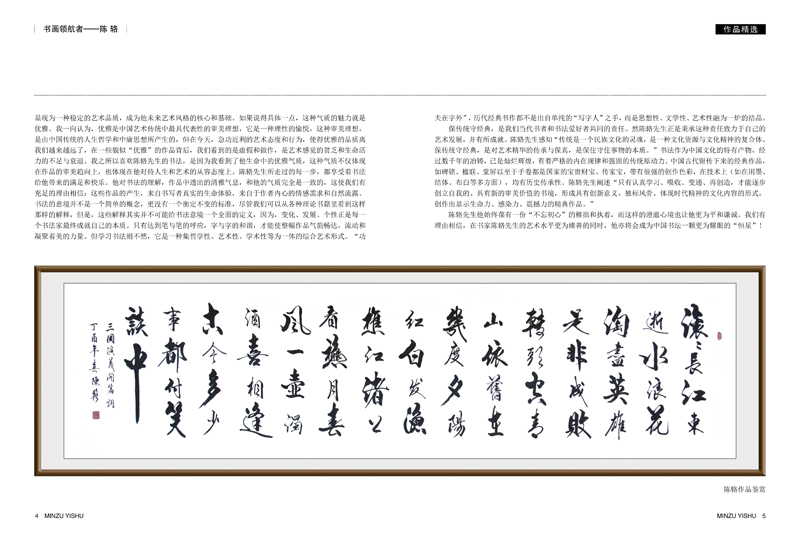 书画领航者——陈 辂
作品精选
显现为一种稳定的艺术品质,成为他未来艺术风格的核心和基础。如果说得具体一点,这种气质的魅力就是
优雅。我一向认为,优雅是中国艺术传统中最具代表性的审美理想,它是一种理性的愉悦,这种审美理想,
是由中国传统的人生哲学和中庸思想所产生的,但在今天,急功近利的艺术态度和行为,使得优雅的品质离
我们越来越远了,在一些貌似“优雅”的作品背后,我们看到的是虚假和做作,是艺术感觉的贫乏和生命活
力的不足与衰退。我之所以喜欢陈辂先生的书法,是因为我看到了他生命中的优雅气质,这种气质不仅体现
在作品的审美趋向上,也体现在他对待人生和艺术的从容态度上。陈辂先生所走过的每一步,都享受着书法
给他带来的满足和快乐。他对书法的理解,作品中透出的清雅气息,和他的气质完全是一致的,这使我们有
充足的理由相信:这些作品的产生,来自书写者真实的生命体验,来自于作者内心的情感需求和自然流露。
书法的意境并不是一个简单的概念,更没有一个衡定不变的标准,尽管我们可以从各种理论书籍里看到这样
那样的解释,但是,这些解释其实并不可能给书法意境一个全面的定义,因为,变化、发展、个性正是每一
个书法家最终成就自己的本质。只有达到笔与笔的呼应,字与字的和谐,才能使整幅作品气韵畅达,流动和
凝聚着美的力量。但学习书法则不然,它是一种集哲学性、艺术性、学术性等为一体的综合艺术形式。“功
夫在字外”,历代经典书作都不是出自单纯的“写字人”之手,而是思想性、文学性、艺术性融为一炉的结晶。
保传统守经典,是我们当代书者和书法爱好者共同的责任。然陈辂先生正是秉承这种责任致力于自己的
艺术发展,并有所成就。陈辂先生感知“传统是一个民族文化的灵魂,是一种文化资源与文化精神的复合体。
保传统守经典,是对艺术精华的传承与保真,是保住守住事物的本质。”书法作为中国文化的特有产物,经
过数千年的冶铸,已是灿烂辉煌,有着严格的内在规律和强固的传统驱动力。中国古代留传下来的经典作品,
如碑铭、楹联、堂屏以至于手卷都是国家的宝贵财宝、传家宝,带有很强的创作色彩,在技术上(如在用墨、
结体、布白等多方面),均有历史传承性。陈辂先生阐述“只有认真学习、吸收、变通、再创造,才能逐步
创立自我的、具有新的审美价值的书境,形成具有创新意义、独标风骨、体现时代精神的文化内容的形式,
创作出显示生命力、感染力、震撼力的精典作品。”
陈辂先生他始终葆有一份“不忘初心”的雅拙和执着,而这样的澄澈心境也让他更为平和谦诚。我们有
理由相信,在书家陈辂先生的艺术水平更为臻善的同时,他亦将会成为中国书坛一颗更为耀眼的“恒星”!
滚滚长江东
逝水浪花
淘尽英雄
是非成败
转头空青
山依旧在
几度夕阳
红白发渔
樵江渚上
看惯月春
风一壶浊
酒喜相逢
古今多少
事都付笑
谈中
三国演义开篇词
丁酉年春陈辂
陈辂作品鉴赏
4 MINZU YISHU
MINZU YISHU 5